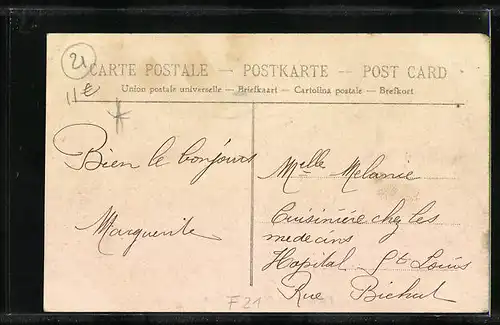 21
11€
CARTE POSTALE — POSTKARTE — POST CARD
Union postale universelle — Briefkaart — Cartolina postale — Brefkort
Bien le bonjours
Marguerite
Melle Melanie
Cuisinière chez les
medecins
Hopital St Louis
Rue Bichat
F21